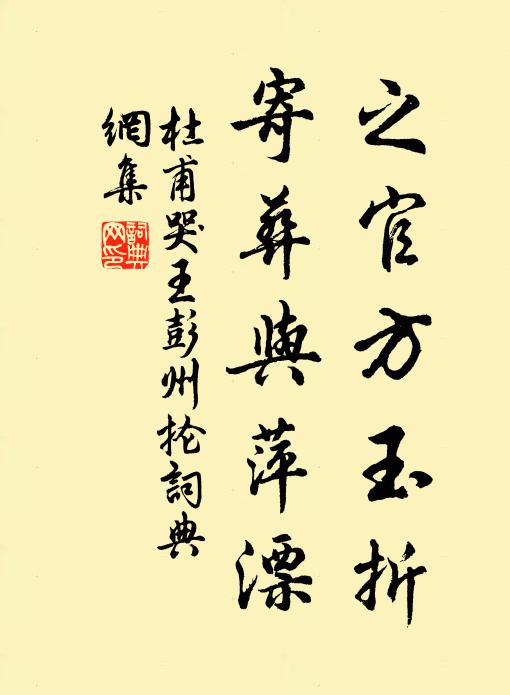 之官方玉折
寄葬與萍漂
杜甫哭王彭州抡詞典
網集
詞典
网印